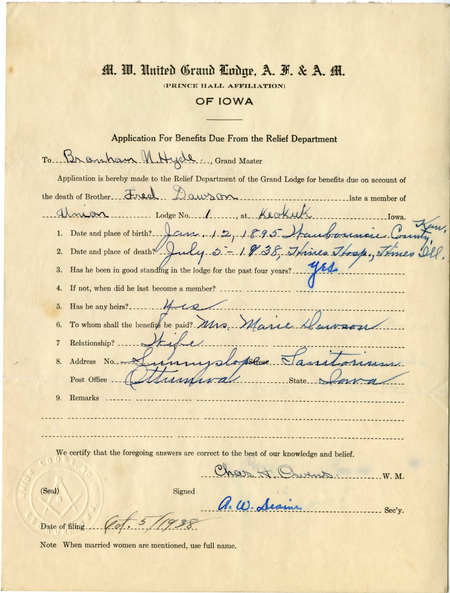 M. W. United Grand Lodge, A. F. & A. M.
(PRINCE HALL AFFILIATION)
OF IOWA
Application For Benefits Due From the Relief Department
To Branham N. Hyde, Grand Master
Application is hereby made to the Relief Department of the Grand Lodge for benefits due on account of
the death of Brother Fred Dawson late a member of
Union Lodge No. 1, at Keokuk Iowa.
1. Date and place of birth? Jan. 12, 1895 Wauboncie County, Kan.
2. Date and place of death? July 5-1938, Hines Hosp., Hines Ill.
3. Has he been in good standing in the lodge for the past four years? yes
4. If not, when did he last become a member?
5. Has he any heirs? Yes
6. To whom shall the benefits be paid? Mrs. Marie Dawson
7. Relationship? Wife
8. Address No. Sunnyslope Sanitorium
Post Office Ottumwa State Iowa
9. Remarks
We certify that the foregoing answers are correct to the best of our knowledge and belief.
Chas. H. Owens W. M.
(Seal) Signed
A. W. Sec'y.
Date of filing Oct. 5/1938
Note When married women are mentioned, use full name.